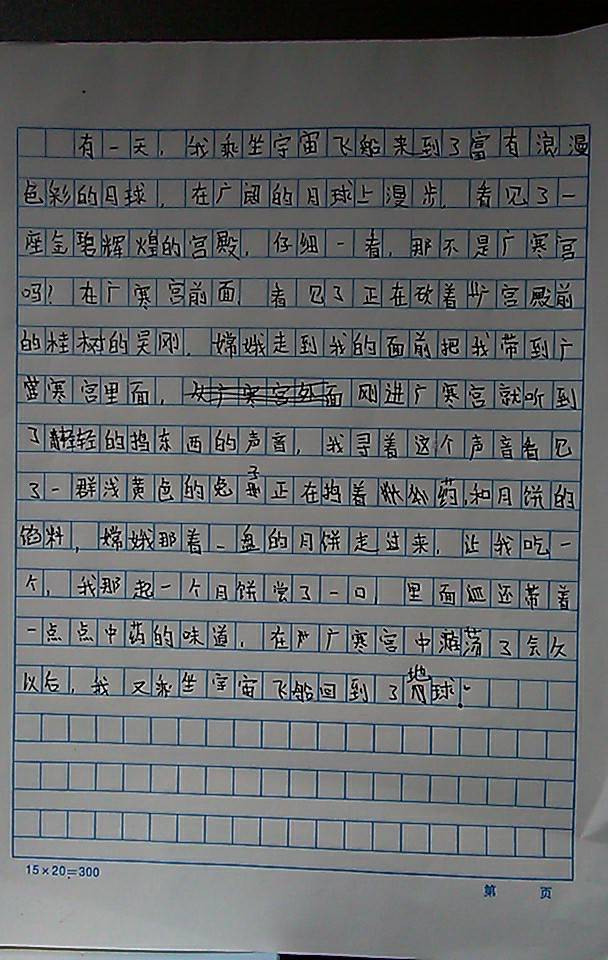 有一天，我乘坐宇宙飞船来到了富有浪漫
色彩的月球，在广阔的月球上漫步，看见了一
座金碧辉煌的宫殿，仔细一看，那不是广寒宫
吗！在广寒宫前面，看见了正在砍着宫殿前
的桂树的吴刚，嫦娥走到我的面前把我带到广
寒宫里面，刚进广寒宫就听到
了轻轻的捣东西的声音，我寻着这个声音看见
了一群浅黄色的兔子正在捣着药，和月饼的
馅料，嫦娥那着一盘的月饼走过来，让我吃一
个，我那起一个月饼尝了一口，里面还带着
一点点中药的味道，在广寒宫中游荡了会久
以后，我又乘坐宇宙飞船回到了地球。
15×20=300
第 页